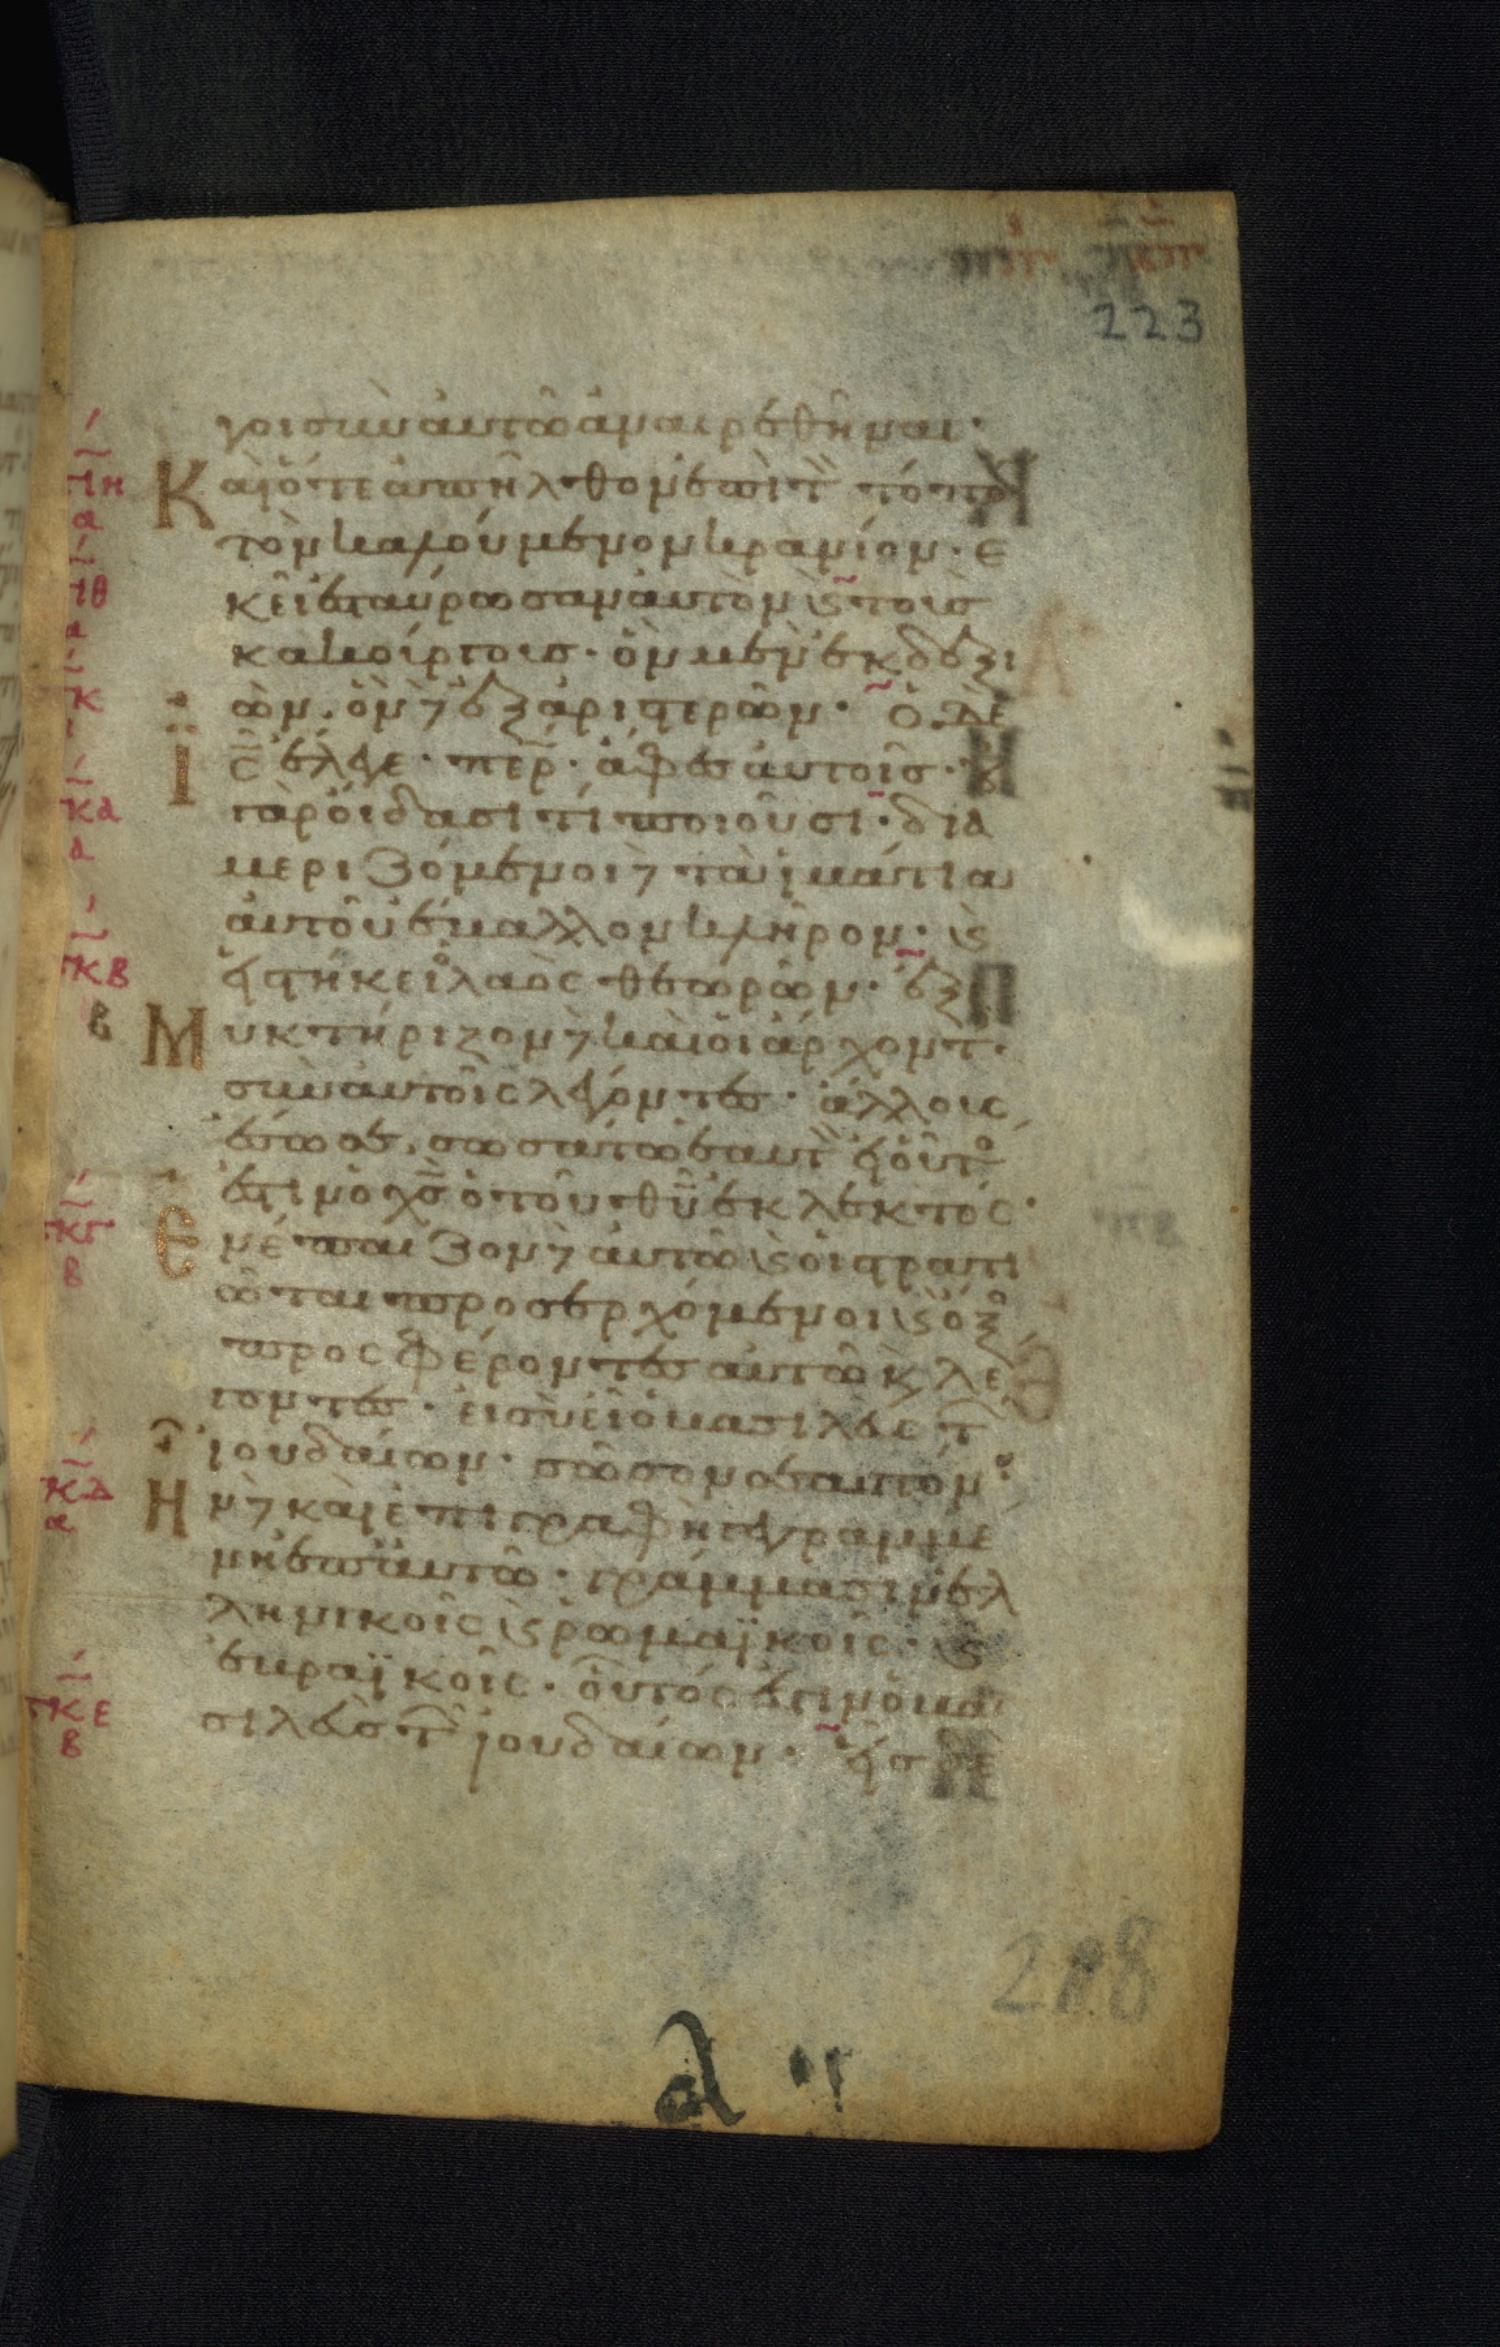 223
γοι σὺν αὐτῶ ἀναιρεθῆναι·
Καὶ ὅτε ἀπῆλθον ἐπὶ τ τόπο
τὸν καλούμενον κρανίον· ε
κεῖ ἐσταύρωσαν αὐτὸν ϗ τοὺσ
κακούργουσ· ὃν μὲν ἐκ δεξι
ῶν. ὃν δ ἐξ ἀριστερῶν· ὁ δὲ
ις ἔλεγε· περ· ἄφεσ αὐτοῖσ· οὐ
γὰρ οἴδασι τί ποιοῦσι· δια
μεριζόμενοι δ τὰ ἱμάτια
αὐτοῦ ἔβαλλον κλῆρον· ϗ
εἱστήκει ὁ λαὸς θεωρῶν· ἐξ
Μυκτήριζον δ καὶ οἱ ἄρχοντ
σὺν αὐτοῖς λέγοντεσ· ἄλλους
ἔσωσε. σωσάτω ἑαυτ εἰ οὗτο
ἐστιν ὁ χς ὁ τοῦ θυ ἐκλεκτός·
Ενέπαιζον δ αὐτῶ ϗ οἱ στρατι
ῶται προσερχόμενοι ϗ ὄξο
προσφέροντεσ αὐτῶ ϗ λέ
γοντεσ· εἰ σὺ εἶ ὁ βασιλεὺς τ
ἰουδαίων· σῶσον σεαυτόν·
Ην δ καὶ ἐπιγραφὴ γεγραμμέ
νη ἐπ αὐτῶ· γράμμασιν ἑλ
ληνικοῖς ϗ ῥωμαϊκοῖς· ϗ
ἑβραϊκοῖς· οὗτός ἐστιν ὁ βα
σιλεὺσ τ ἰουδαίων· εἷσ δὲ
ιη
α
ιθ
α
κ
κα
α
κβ
β
κγ
β
κδ
α
κε
β